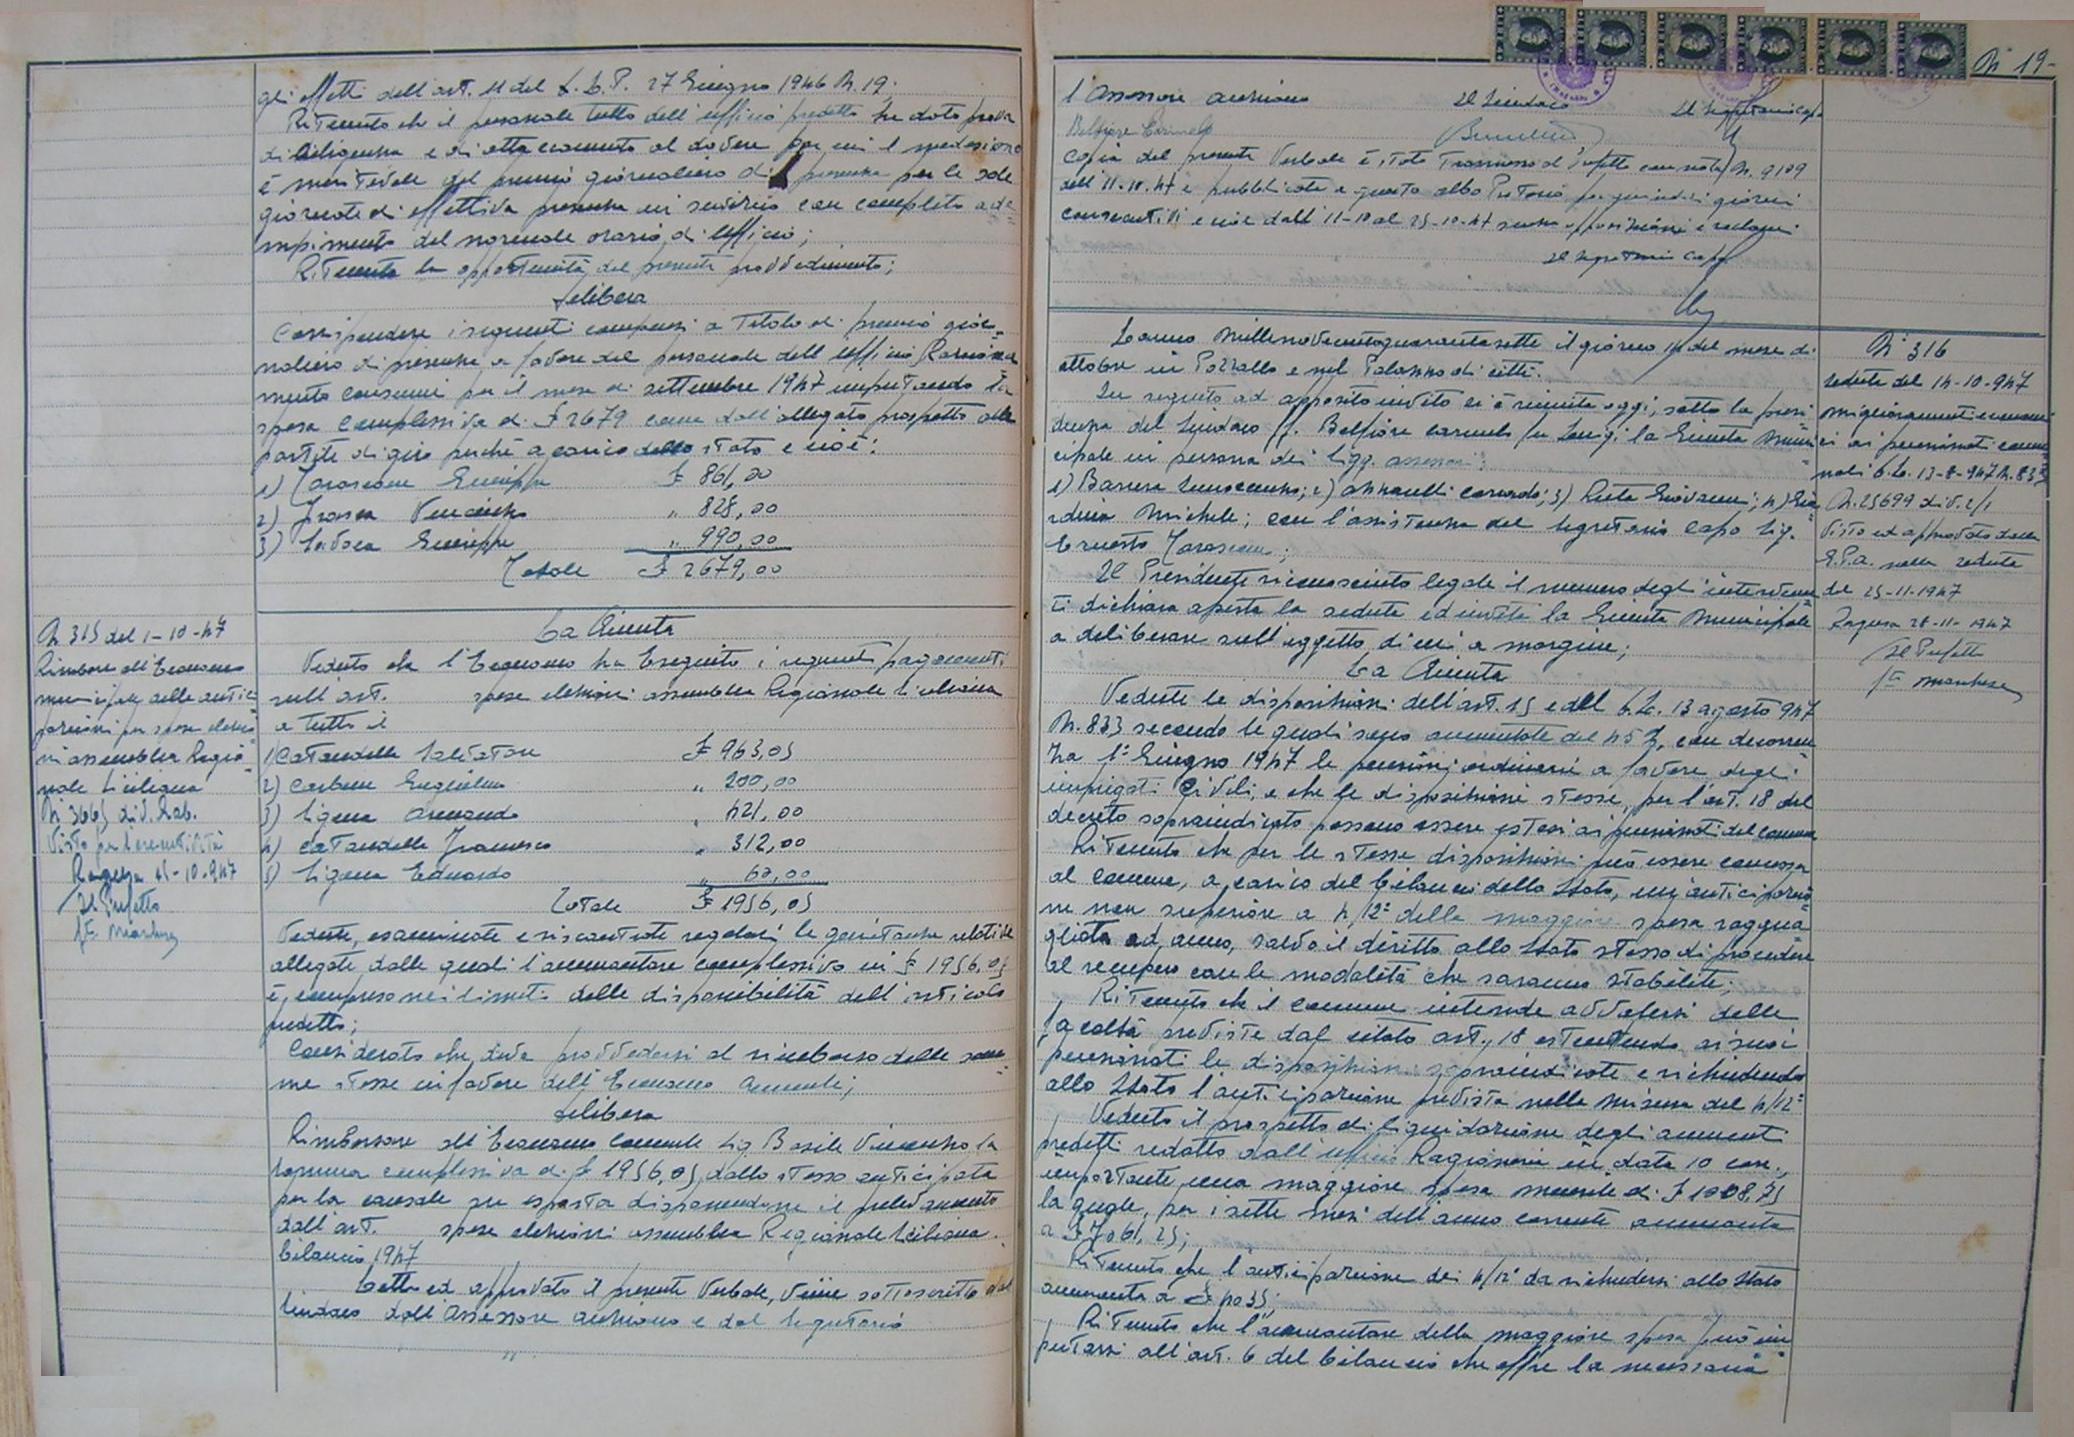 gli effetti dell'art. 11 del D.L.P. 27 Giugno 1946 N. 19.
Ritenuto che il personale tutto dell'ufficio predetto ha dato prova
di diligenza e di attaccamento al dovere per cui il medesimo
è meritevole del premio giornaliero di presenza per le sole
giornate di effettiva presenza in servizio con completo ade=
mpimento del normale orario di ufficio;
Ritenuta la opportunità del presente provvedimento;
Delibera
Corrispondere i seguenti compensi a titolo di premio gior=
naliero di presenza a favore del personale dell'ufficio Raziona
mento consumi per il mese di settembre 1947 imputando la
spesa complessiva di £ 2679 come dall'allegato prospetto alle
partite di giro perché a carico dello stato e cioè:
1) Tarascone Giuseppe £ 861,00
2) Vincenzo " 828,00
3) Giuseppe " 990,00
Totale £ 2679,00
N 315 del 1-10-47
Rimborso all'Economo
municipale delle antici
pazioni per spese elezio
ni assemblea Regio=
nale Siciliana
N 3665 div. Rab.
Visto per l'esecutività
Ragusa 25-10-947
Il Prefetto
La Giunta
Veduto che l'Economo ha eseguito i seguenti pagamenti
sull'art. spese elezioni assemblea Regionale Siciliana
a tutto il
1) Cataudella Salvatore £ 963,05
2) Carbone Guglielmo " 200,00
3) Ligama Armando " 421,00
4) Cataudella Francesco " 312,00
5) Ligama Edoardo " 60,00
Totale £ 1956,05
Vedute, esaminate e riscontrate regolari le quietanze relative
allegate dalle quali l'ammontare complessivo in £ 1956,05
è compreso nei limiti delle disponibilità dell'articolo
predetto;
Considerato che deve provvedersi al rimborso delle som=
me stesse in favore dell'Economo Comunale;
Delibera
Rimborsare all'Economo Comunale Sig. Basile Vincenzo la
somma complessiva di £ 1956,05 dallo stesso anticipata
per la causale su esposta disponendone il prelevamento
dall'art. spese elezioni assemblea Regionale Siciliana.
bilancio 1947
Letto ed approvato il presente Verbale, viene sottoscritto dal
Sindaco dall'Assessore anziano e dal Segretario
N 19-
l'Assessore anziano Il Sindaco Il Segretario Capo
Belfiore Carmelo
Copia del presente Verbale è stato trasmesso al Prefetto con nota N. 9109
dell'11-10-47 e pubblicata a questo albo Pretorio per quindici giorni
consecutivi e cioè dall'11-10 al 25-10-47 senza opposizioni e reclami.
Il Segretario Capo
L'anno millenovecentoquarantasette il giorno 14 del mese di
ottobre in Pozzallo e nel Palazzo di città.
In seguito ad apposito invito si è riunita oggi, sotto la presi
denza del Sindaco ff. Belfiore Carmelo fu Luigi la Giunta Muni
cipale in persona dei Sigg. assessori:
1) Barrera Innocenzo; 2) Annarelli Corrado; 3) Rista Giovanni; 4) Giu
rdina Michele; con l'assistenza del Segretario Capo Sig.
Ernesto Tarascone;
Il Presidente riconosciuto legale il numero degli intervenu
ti dichiara aperta la seduta ed invita la Giunta Municipale
a deliberare sull'oggetto di cui a margine;
La Giunta
Vedute le disposizioni dell'art. 15 e del D.L. 13 agosto 947
N. 833 secondo le quali sono aumentate del 45%, con decorren
za 1° Giugno 1947 le pensioni ordinarie a favore degli
impiegati civili, e che le disposizioni stesse, per l'art. 18 del
decreto sopraindicato possono essere estesi ai pensionati del comune
Ritenuto che per le stesse disposizioni può essere concessa
al comune, a carico del bilancio dello Stato, un'anticipazio=
ne non superiore a 4/12 della maggiore spesa raggua
gliata ad anno, salvo il diritto allo Stato stesso di procedere
al recupero con le modalità che saranno stabilite;
Ritenuto che il comune intende avvalersi delle
facoltà previste dal citato art. 18 estendendo ai suoi
pensionati le disposizioni sopraindicate e richiedendo
allo Stato l'anticipazione prevista nella misura del 4/12
Veduto il prospetto di liquidazione degli aumenti
predetti redatto dall'ufficio Ragioneria in data 10 corr.,
importante una maggiore spesa mensile di £ 1008,75
la quale, per i sette mesi dell'anno corrente ammonta
a £ 7061,25;
Ritenuto che l'anticipazione dei 4/12 da richiedersi allo Stato
ammonta a £ 4035;
Ritenuto che l'ammontare della maggiore spesa può im
putarsi all'art. 6 del bilancio che offre la necessaria
N 316
seduta del 14-10-947
miglioramenti econom
ici ai pensionati comu
nali D.L. 13-8-947 N. 833
N. 25699 div. 2/1
Visto ed approvato dalla
G.P.A. nella seduta
del 25-11-1947
Ragusa 28-11-1947
Il Prefetto